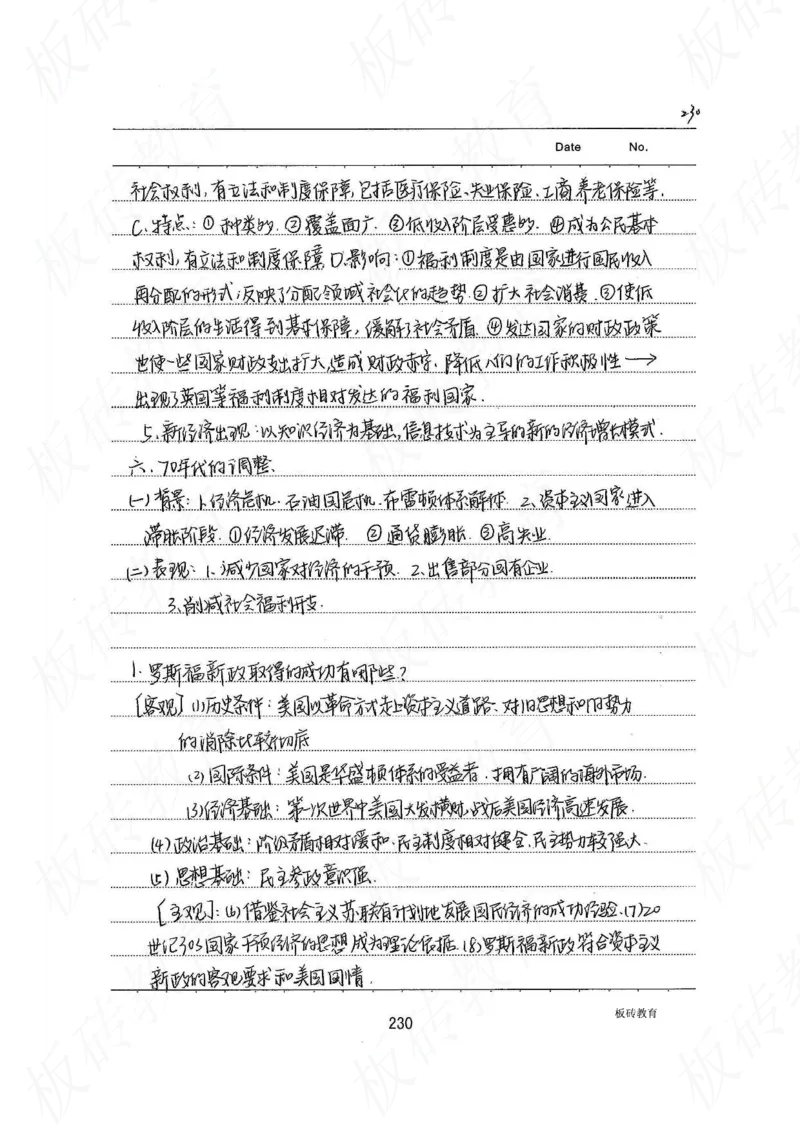 230
Date No.
社会权利,有立法和制度保障,包括医疗保险、失业保险、工商养老保险等.
C.特点:①种类多.②覆盖面广.③低收入阶层受惠多.④成为公民基本
权利,有立法和制度保障 D.影响:①福利制度是由国家进行国民收入
再分配的形式,反映了分配领域社会化的趋势.②扩大社会消费.③使低
收入阶层的生活得到基本保障,缓解了社会矛盾.④发达国家的财政政策
也使一些国家财政支出扩大,造成财政赤字.降低人们的工作积极性→
出现了英国等福利制度相对发达的福利国家.
5.新经济出现:以知识经济为基础,信息技术为主导的新的经济增长模式.
六、70年代的调整.
(一)背景:1.经济危机.石油国危机.布雷顿体系解体.2.资本主义国家进入
滞胀阶段.①经济发展迟滞.②通货膨胀.③高失业.
(二)表现:1.减少国家对经济的干预.2.出售部分国有企业.
3.削减社会福利开支.
1.罗斯福新政取得的成功有哪些?
[客观](1)历史条件:美国以革命方式走上资本主义道路.对旧思想和旧势力
的消除比较彻底
(2)国际条件:美国是华盛顿体系的受益者.拥有广阔的海外市场.
(3)经济基础:第一次世界中美国大发横财,战后美国经济高速发展.
(4)政治基础:阶级矛盾相对缓和.民主制度相对健全.民主势力较强大.
(5)思想基础:民主参政意识强.
[主观]:(6)借鉴社会主义苏联有计划地发展国民经济的成功经验.(7)20
世纪30s国家干预经济的思想成为理论依据.(8)罗斯福新政符合资本主义
新政的客观要求和美国国情.
230
板砖教育